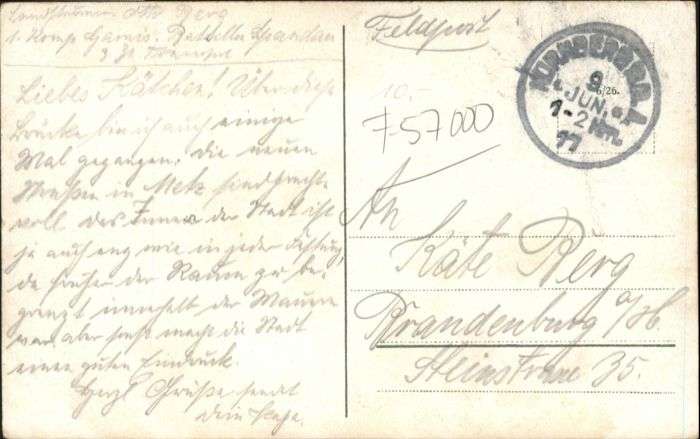 Landsturmm. Otto Berg
1. Komp. Garnis. Bataillon Spandau
z. Zt.
Liebes Kätchen! Über diese
Brücke bin ich auch einige
Mal gegangen. Die neuen
Straßen in Metz sind pracht-
voll das Innere der Stadt ist
ja auch eng wie in jeder Festung,
da früher der Raum ja be-
grenzt innerhalb der Mauern
war, aber sonst macht die Stadt
einen guten Eindruck.
Herzl Grüße sendet
Dein Papa.
Feldpost
10.-
757000
NÜRNBERG 2. A
9
JUN.
1-2 Nm.
17
6/26.
An
Käte Berg
Brandenburg a/H.
Steinstrasse 35.